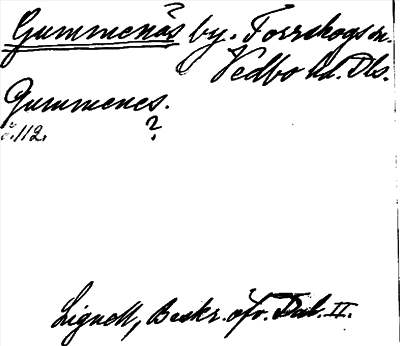 Gummenäs by. Torrskogs sn.
Vedbo hd. Dls.
Gummenes.
s. 112. ?
Lignell, Beskr. öfv. Dal. II.